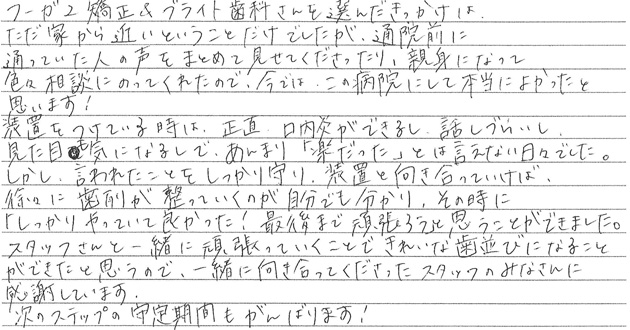 フーガ2 矯正&ブライト歯科さんを選んだきっかけは、
ただ家から近いということだけでしたが、通院前に
通っていた人の声をまとめて見せてくださったり、親身になって
色々相談にのってくれたので、今では、この病院にして本当によかったと
思います!
装置をつけている時は、正直、口内炎ができるし、話しづらいし、
見た目も気になるしで、あんまり「楽だった」とは言えない日々でした。
しかし、言われたことをしっかり守り、装置と向き合っていけば、
徐々に歯列が整っていくのが自分でも分かり、その時に
「しっかりやっていて良かった!最後まで頑張ろうと思うことができました。
スタッフさんと一緒に頑張っていくことできれいな歯並びになること
ができたと思うので、一緒に向き合ってくださったスタッフのみなさんに
感謝しています。
次のステップの守定期間もがんばります!